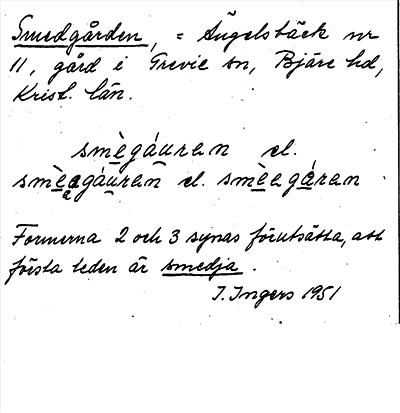 Smedgården, = Ängelsbäck nr
11, gård i Grevie sn, Bjäre hd,
Krist. län.
smègáuran el.
smèegáuran el. smèegáran
Formerna 2 och 3 synas förutsätta, att
första leden är smedja.
I. Ingers 1951